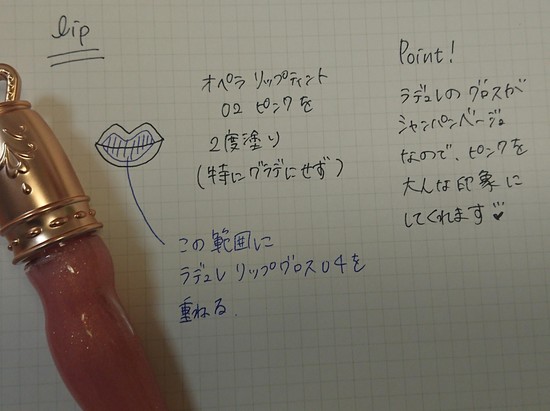 lip
オペラ リップティント
02 ピンクを
2度塗り
(特にグラデにせず)
この範囲に
ラデュレ リップグロス04を
重ねる.
Point!
ラデュレのグロスが
シャンパンベージュ
なので、ピンクを
大人な印象に
してくれます♥